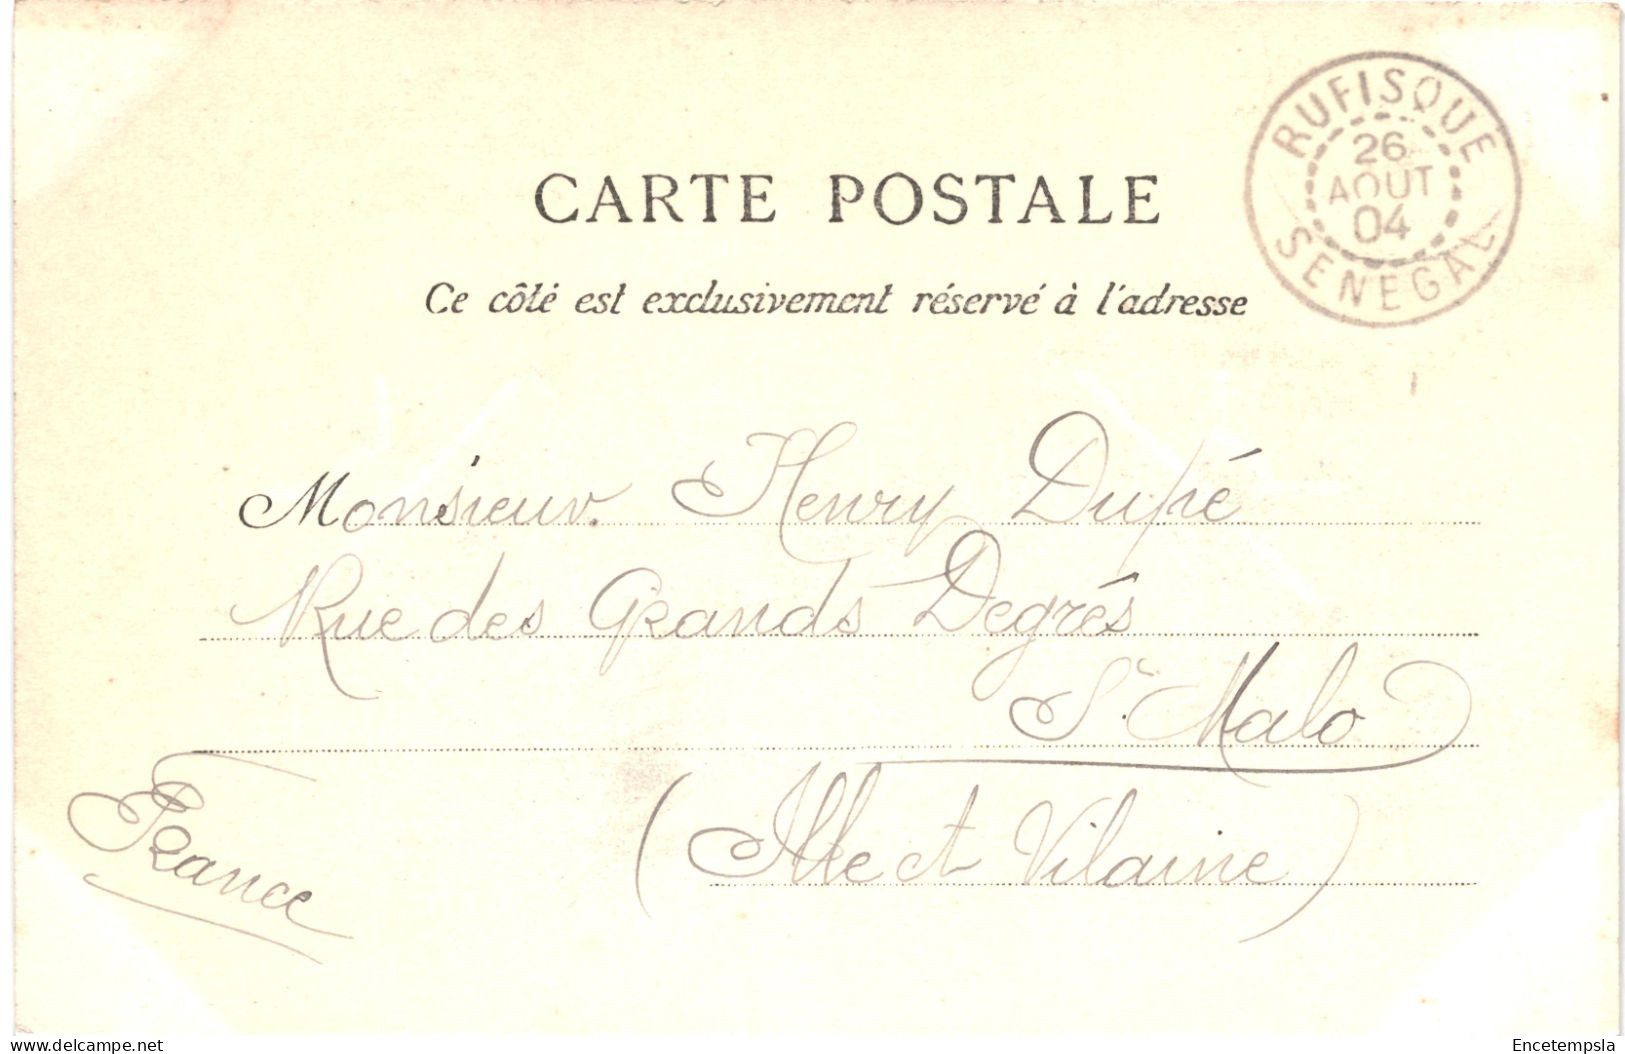 CARTE POSTALE
RUFISQUE
26
AOUT
04
SENEGAL
Ce côté est exclusivement réservé à l'adresse
Monsieur. Henry Dupé
Rue des Grands Degrés
St. Malo
(Ille et Vilaine)
France
www.delcampe.net
Encetempsla